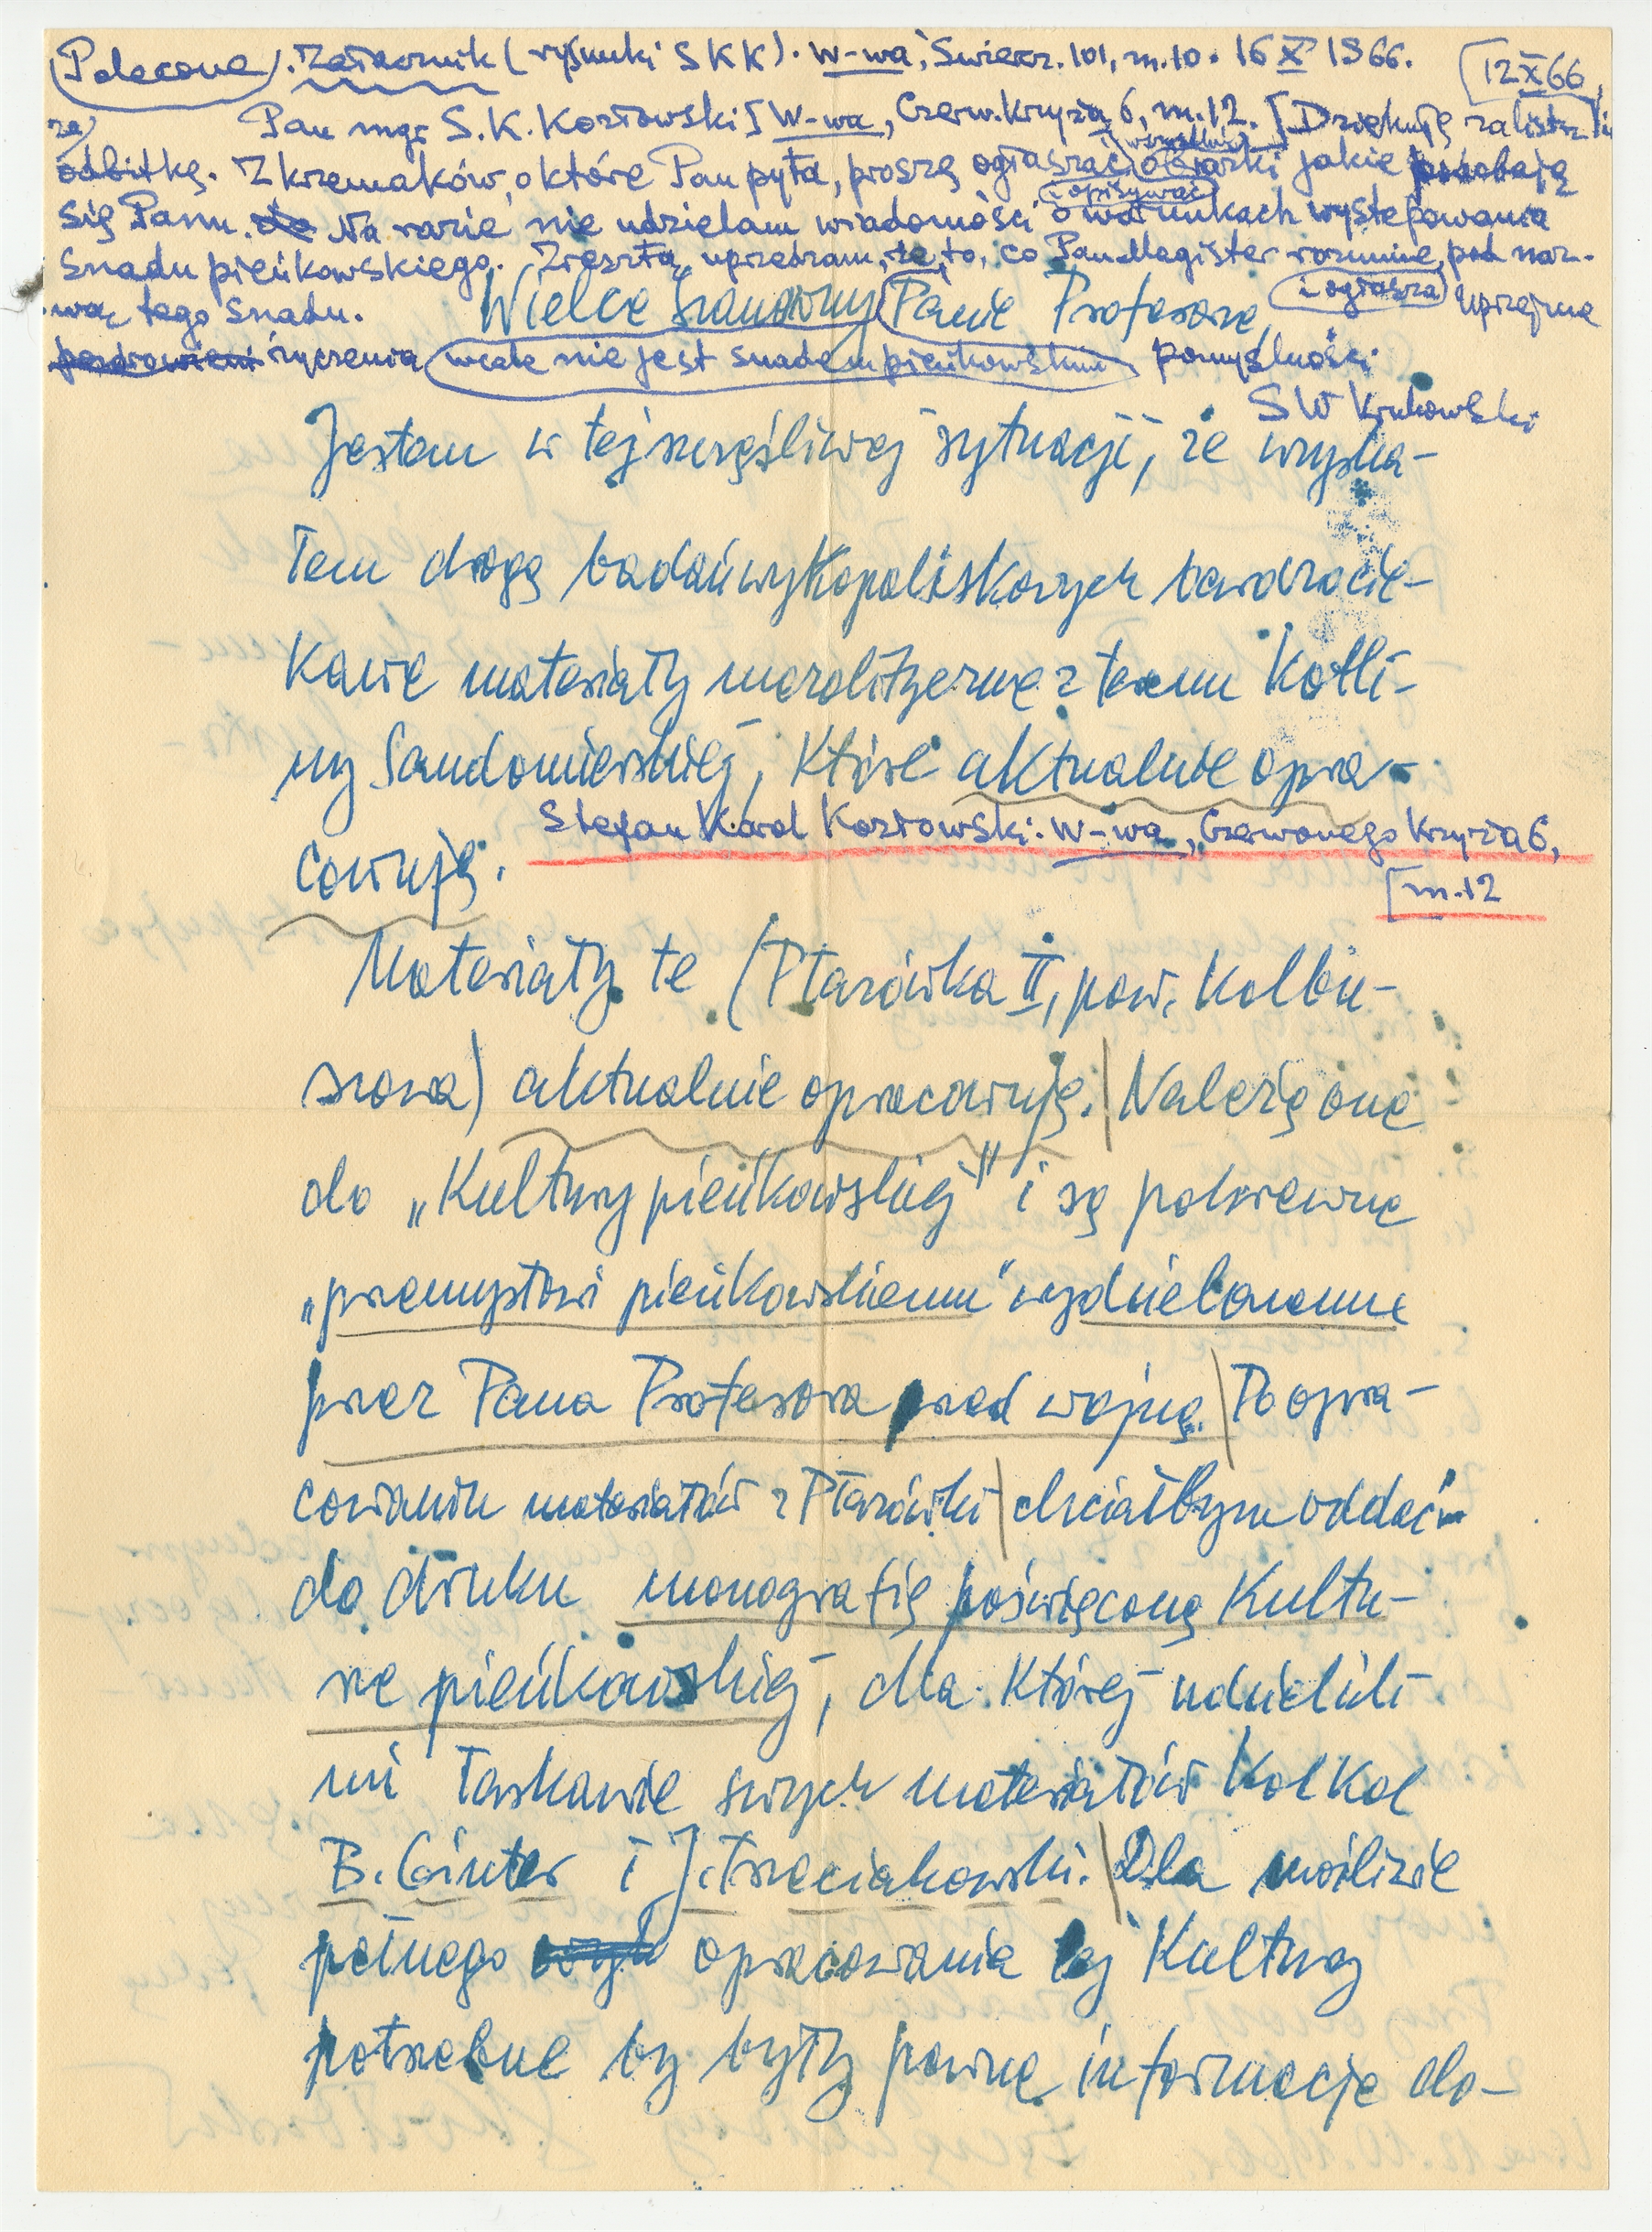 (Polecone). Zał. zwornik (rysunki SKK). W-wa, Świercz. 101, m. 10. 16 X 1966. [12 X 66
Pan mgr S. K. Kozłowski [W-wa, Czerw. Krzyża 6, m. 12. [Dziękuję za list i
za odbitkę. Z krzemaków, o które Pan pyta, proszę ogłaszać i opisywać wszystkie okazki jakie podobają
się Panu. Na razie nie udzielam wiadomości o warunkach występowania
Snadu pieńkowskiego. Zresztą uprzedzam, że to, co Pan Magister rozumie i ogłasza pod naz-
wą tego Snadu.
wcale nie jest snadem pieńkowskim
Uprzejme
pozdrowieni życzenia pomyślności
SW Krukowski
Wielce Szanowny Panie Profesorze,
Jestem w tej szczęśliwej sytuacji, że uzyska-
łem drogą badań wykopaliskowych bardzo cie-
kawe materiały mezolityczne z terenu Kotli-
ny Sandomierskiej, które aktualnie opra-
cowuję.
Stefan Karol Kozłowski: W-wa, Czerwonego Krzyża 6,
[m. 12
Materiały te (Ptazówka II, pow. Kolbu-
szowa) aktualnie opracowuję. | Należą one
do „Kultury pieńkowskiej" i są pokrewne
„przemysłowi pieńkowskiemu" wydzielonemu
przez Pana Profesora przed wojną. | Po opra-
cowaniu materiałów z Płazówki | chciałbym oddać
do druku monografię poświęconą Kultu-
rze pieńkowskiej, dla której udzielili
mi łaskawie swych materiałów Kol Kol
B. Ginter i J. Trzeciakowski. | Dla możliwie
pełnego opracowania tej Kultury
potrzebne by były pewne informacje do-